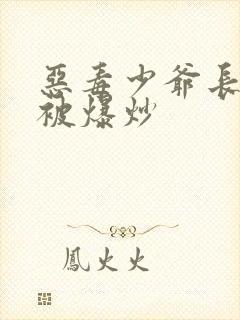 惡毒少爺長
被爆炒
鳳火火